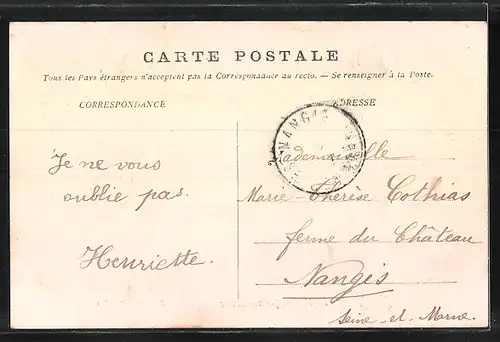 CARTE POSTALE
Tous les Pays étrangers n'acceptent pas la Correspondance au recto. — Se renseigner à la Poste.
CORRESPONDANCE
ADRESSE
NANGIS
Je ne vous
oublie pas.
Henriette.
Mademoiselle
Marie-Thérèse Cothias
ferme du Château
Nangis
Seine-et-Marne.